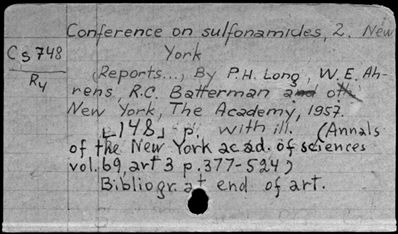 Conference on sulfonamides, 2. New
York
Cs 748
R4
(Reports..., By P.H. Long, W.E. Ah-
rens, R.C. Batterman and oth.
New York, The Academy, 1957.
148 p. with ill. (Annals
of the New York acad. of sciences
vol. 69, art 3 p. 377-524)
Bibliogr. at end of art.